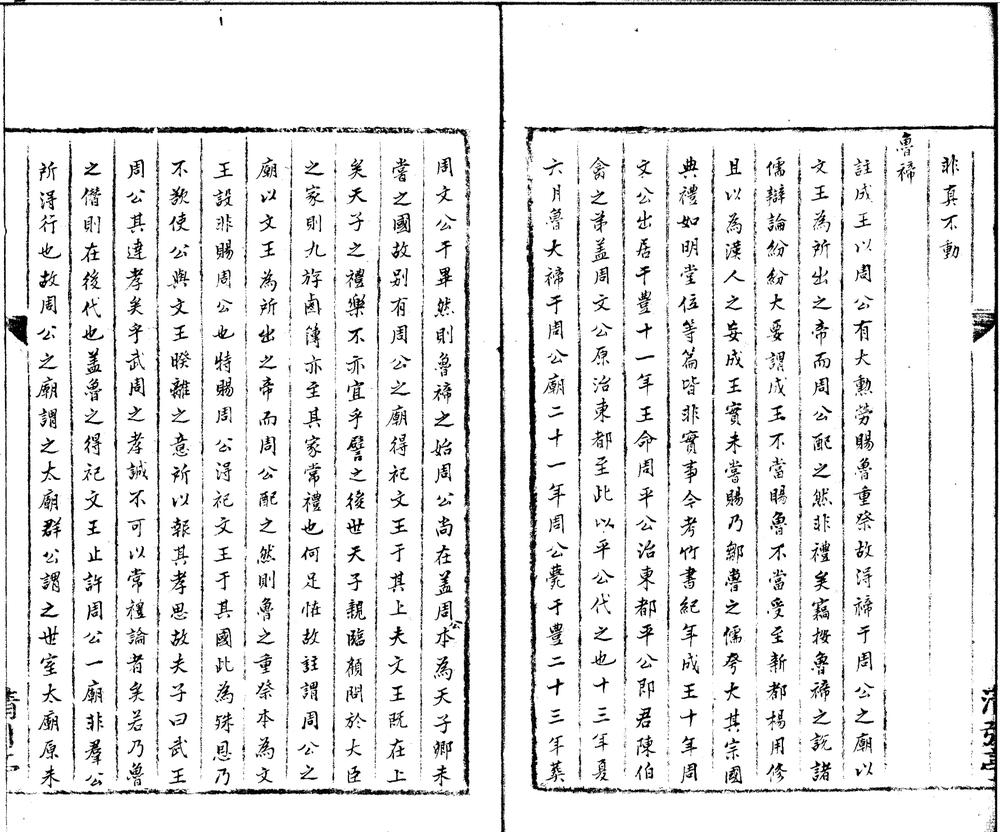 非真不動
魯禘
註成王以周公有大勲勞賜魯重祭故得禘于周公之廟以
文王為所出之帝而周公配之然非禮矣竊按魯禘之說諸
儒辯論紛紛大要謂成王不當賜魯不當受至新都楊用修
且以為漢人之妄成王實未嘗賜乃鄒魯之儒夸大其宗國
典禮如明堂位等篇皆非實事今考竹書紀年成王十年周
文公出居于豐十一年王命周平公治東都平公即君陳伯
禽之弟盖周文公原治東都至此以平公代之也十三年夏
六月魯大禘于周公廟二十一年周公薨于豐二十三年葬
周文公于畢然則魯禘之始周公尚在盖周公本為天子卿未
嘗之國故别有周公之廟得祀文王于其上夫文王既在上
矣天子之禮樂不亦宜乎譬之後世天子親臨顧問於大臣
之家則九斿鹵簿亦至其家常禮也何足怪故註謂周公之
廟以文王為所出之帝而周公配之然則魯之重祭本為文
王設非賜周公也特賜周公得祀文王于其國此為殊恩乃
不敢使公與文王暌離之意所以報其孝思故夫子曰武王
周公其達孝矣乎武周之孝誠不可以常禮論者矣若乃魯
之僭則在後代也盖魯之得祀文王止許周公一廟非羣公
所得行也故周公之廟謂之太廟群公謂之世室太廟原未